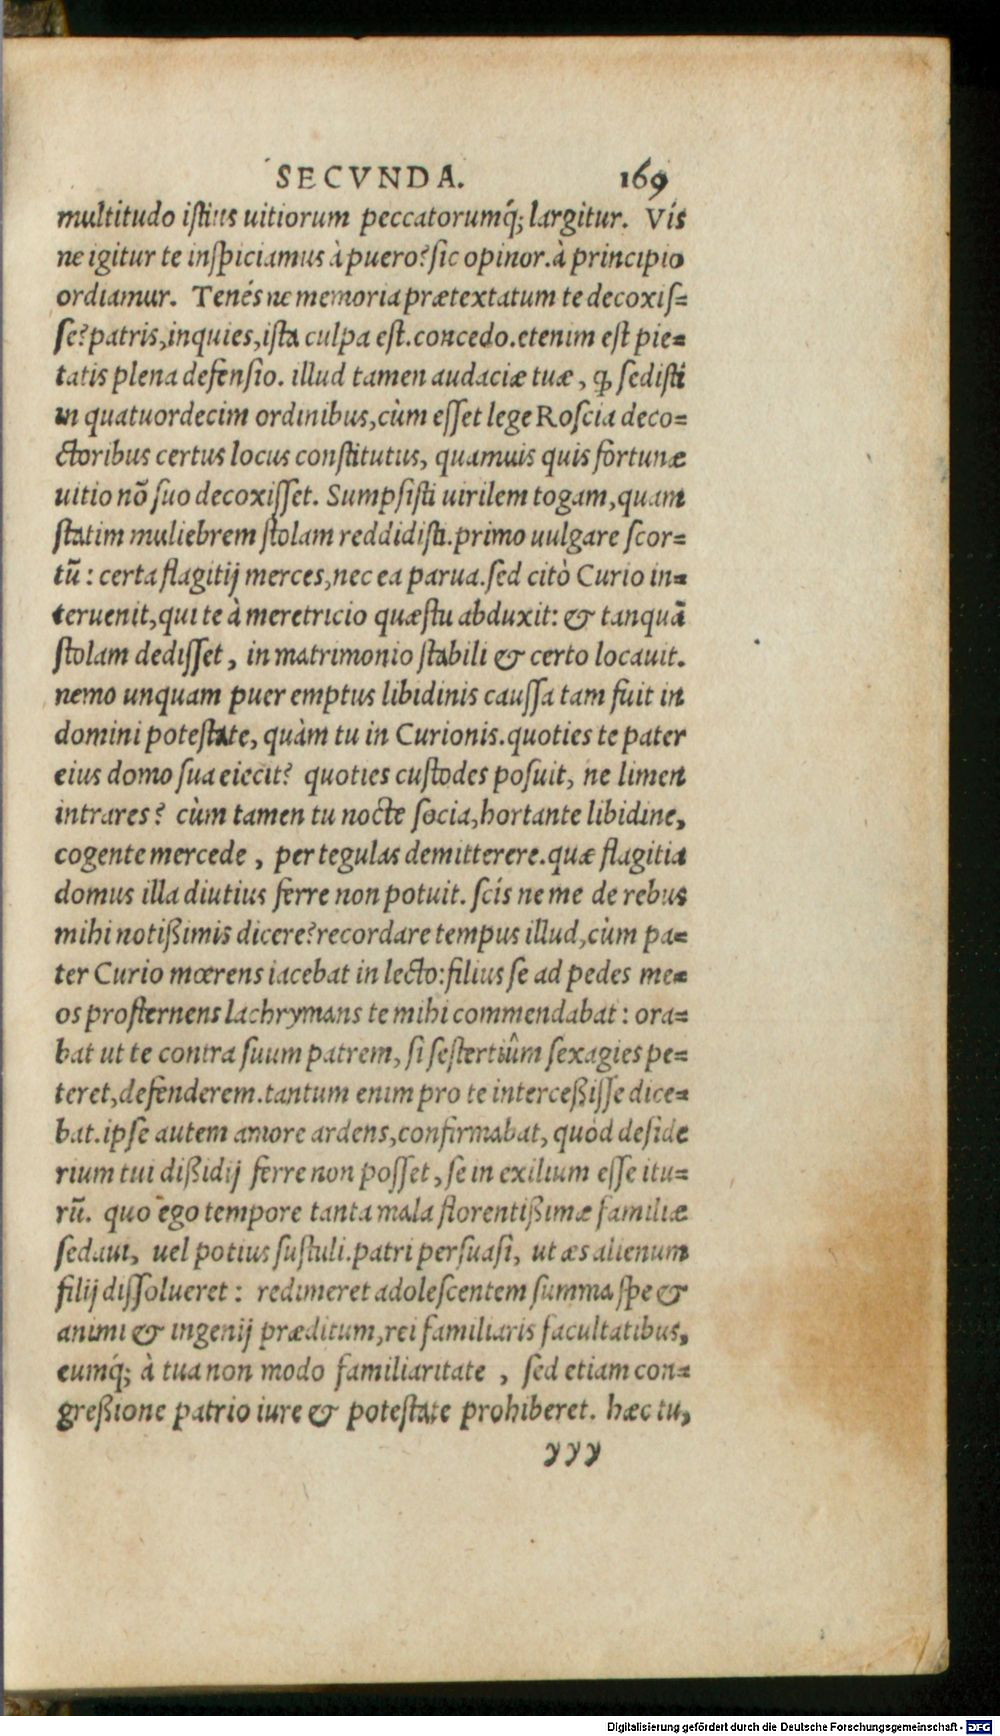 SECVNDA. 169
multitudo istius uitiorum peccatorumq́; largitur. Vís
ne igitur te inspiciamus à puero? sic opinor. à principio
ordiamur. Tenés ne memoria prætextatum te decoxis=
se? patris, inquies, ista culpa est. concedo. etenim est pie=
tatis plena defensio. illud tamen audaciæ tuæ, ꝙ sedisti
in quatuordecim ordinibus, cùm esset lege Roscia deco=
ctoribus certus locus constitutus, quamuis quis fortunæ
uitio nõ suo decoxisset. Sumpsisti uirilem togam, quam
statim muliebrem stolam reddidisti. primo uulgare scor=
tũ: certa flagitij merces, nec ea parua. sed citò Curio in=
teruenit, qui te à meretricio quæstu abduxit: & tanquã
stolam dedisset, in matrimonio stabili & certo locauit.
nemo unquam puer emptus libidinis caussa tam fuit in
domini potestate, quàm tu in Curionis. quoties te pater
eius domo sua eiecit? quoties custodes posuit, ne limen
intrares? cùm tamen tu nocte socia, hortante libidine,
cogente mercede, per tegulas demitterere. quæ flagitia
domus illa diutius ferre non potuit. scís ne me de rebus
mihi notißimis dicere? recordare tempus illud, cùm pa=
ter Curio mœrens iacebat in lecto: filius se ad pedes me=
os prosternens lachrymans te mihi commendabat: ora=
bat ut te contra suum patrem, si sestertiûm sexagies pe=
teret, defenderem. tantum enim pro te interceßisse dice=
bat. ipse autem amore ardens, confirmabat, quòd deside
rium tui dißidij ferre non posset, se in exilium esse itu=
rũ. quo ego tempore tanta mala florentißimæ familiæ
sedaui, uel potius sustuli. patri persuasi, ut æs alienum
filij dissolueret: redimeret adolescentem summa spe &
animi & ingenij præditum, rei familiaris facultatibus,
eumq́; à tua non modo familiaritate, sed etiam con=
greßione patrio iure & potestate prohiberet. hæc tu,
yyy
Digitalisierung gefördert durch die Deutsche Forschungsgemeinschaft - DFG